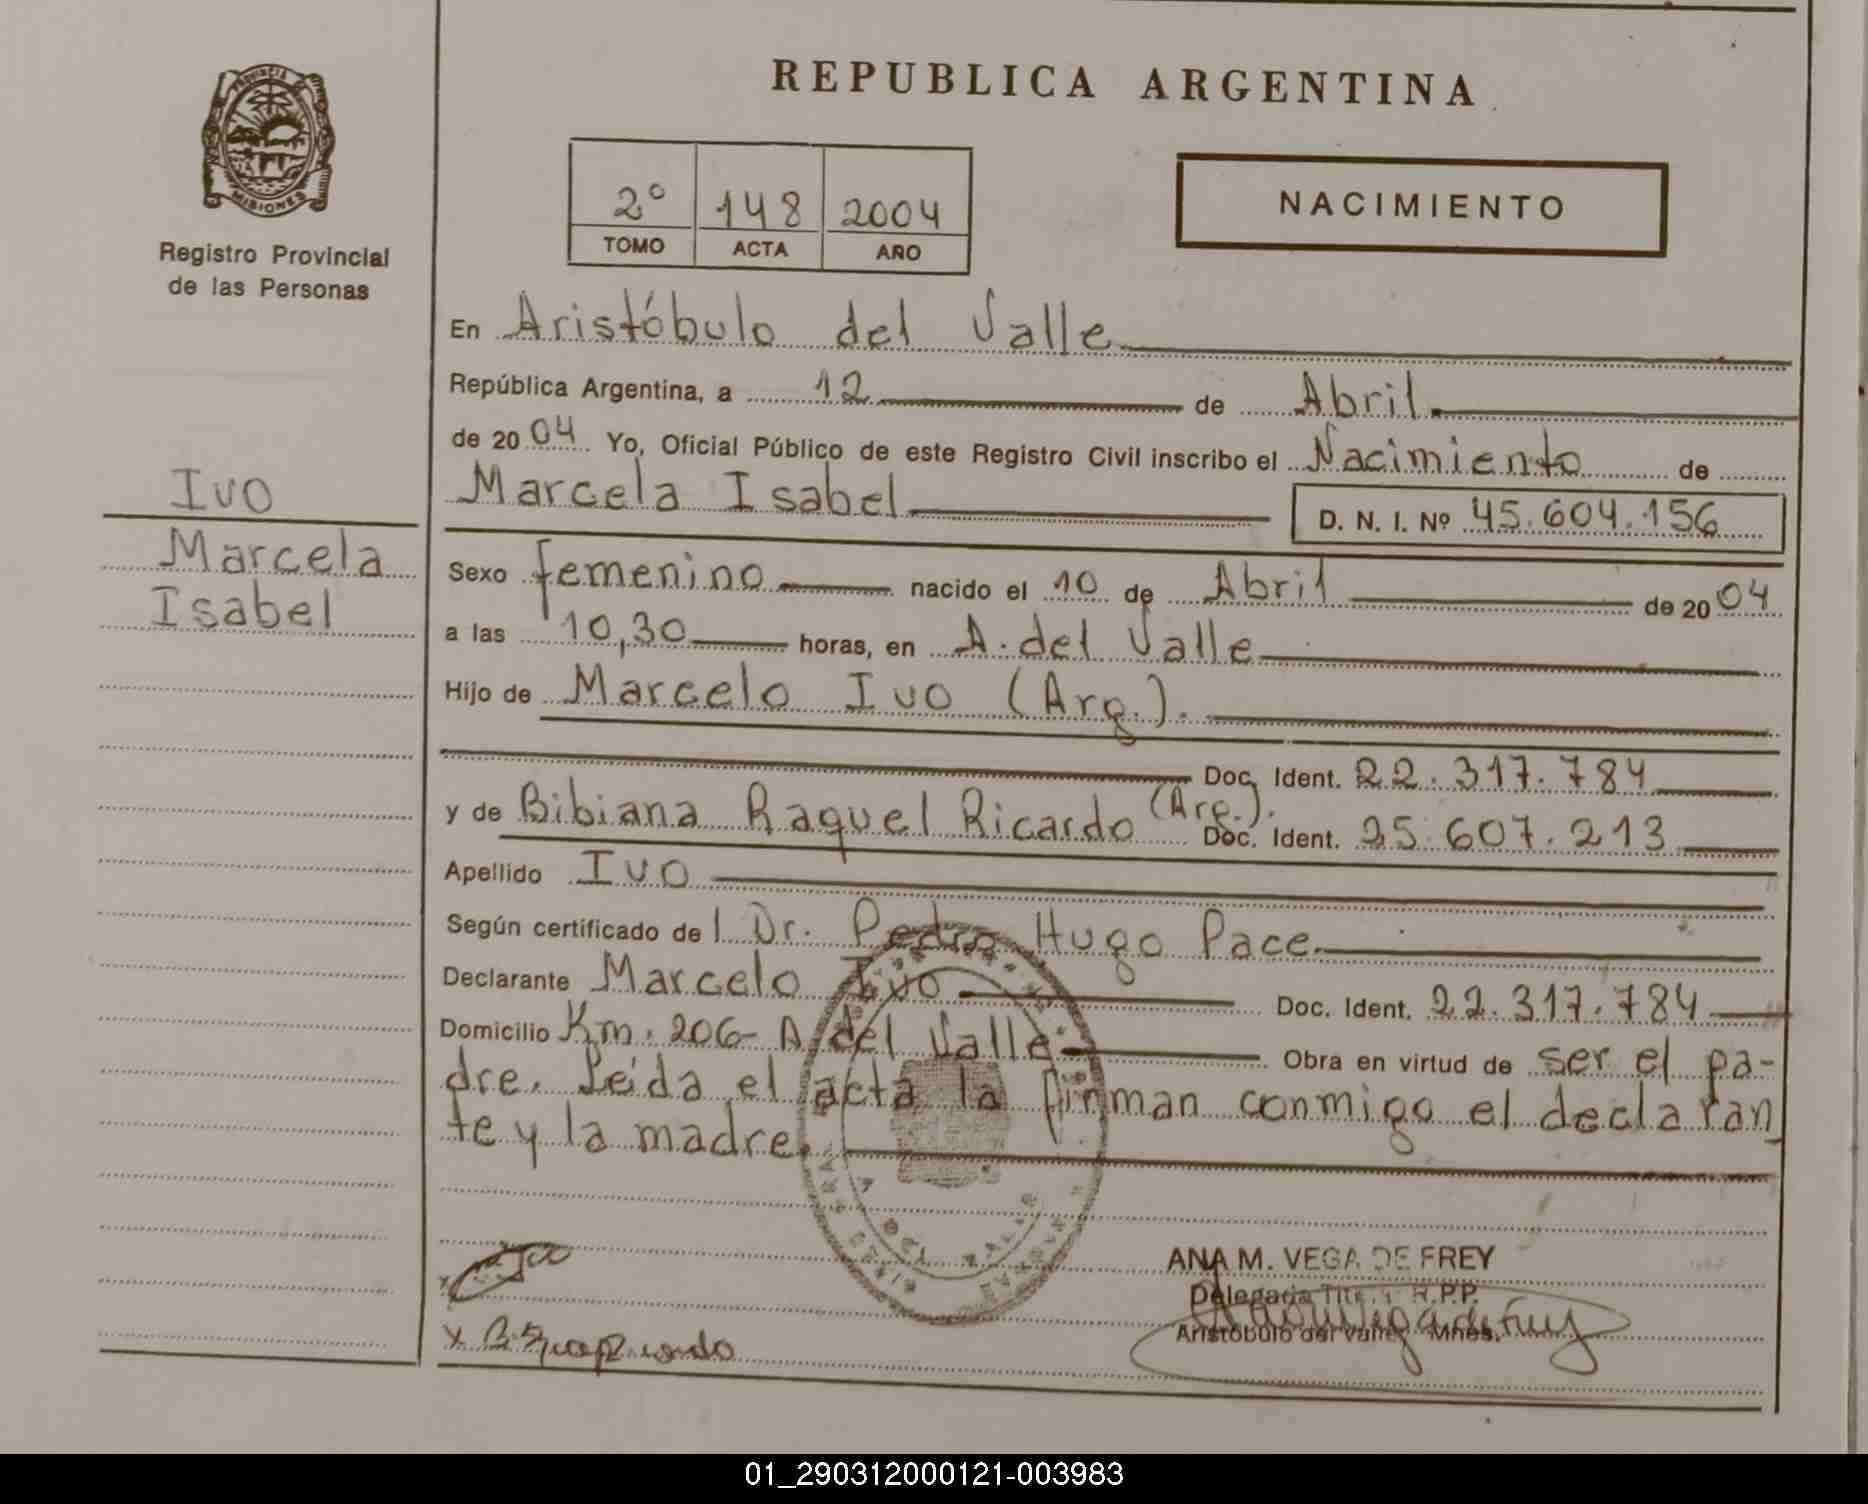 REPUBLICA ARGENTINA
PROVINCIA DE
MISIONES
Registro Provincial
de las Personas
2º 148 2004
TOMO ACTA AÑO
NACIMIENTO
Ivo
Marcela
Isabel
En Aristóbulo del Valle
República Argentina, a 12 de Abril
de 2004 Yo, Oficial Público de este Registro Civil inscribo el Nacimiento de
Marcela Isabel D. N. I. Nº 45.604.156
Sexo femenino nacido el 10 de Abril de 2004
a las 10,30 horas, en A. del Valle
Hijo de Marcelo Ivo (Arg.).
Doc. Ident. 22.317.784
y de Bibiana Raquel Ricardo (Arg.). Doc. Ident. 25.607.213
Apellido Ivo
Según certificado del Dr. Pedro Hugo Pace
Declarante Marcelo Ivo Doc. Ident. 22.317.784
Domicilio Km. 206- A del Valle Obra en virtud de ser el pa-
dre. Leída el acta la firman conmigo el declaran
te y la madre.
ANA M. VEGA DE FREY
Delegada Titular R.P.P.
Aristóbulo del Valle Mnes.
01_290312000121-003983